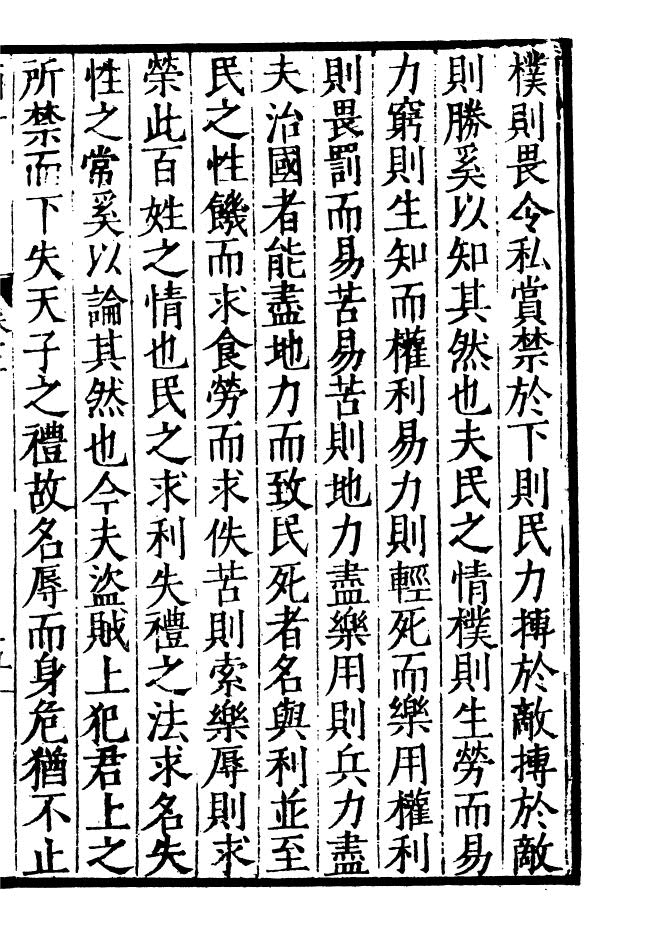 樸則畏令私賞禁於下則民力摶於敵摶於敵
則勝奚以知其然也夫民之情樸則生勞而易
力窮則生知而權利易力則輕死而樂用權利
則畏罰而易苦易苦則地力盡樂用則兵力盡
夫治國者能盡地力而致民死者名與利並至
民之性饑而求食勞而求佚苦則索樂辱則求
榮此百姓之情也民之求利失禮之法求名失
性之常奚以論其然也今夫盜賊上犯君上之
所禁而下失天子之禮故名辱而身危猶不止